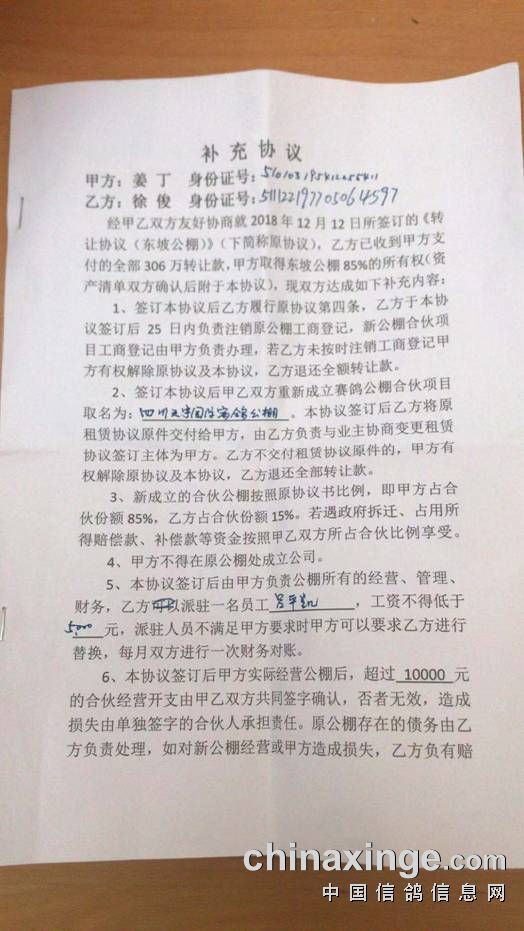 补充协议
甲方：姜 丁 身份证号：
乙方：徐 俊 身份证号：
经甲乙双方友好协商就 2018 年 12 月 12 日所签订的《转
让协议（东坡公棚）》（下简称原协议），乙方已收到甲方支
付的全部 306 万转让款，甲方取得东坡公棚 85%的所有权（资
产清单双方确认后附于本协议），现双方达成如下补充内容：
1、签订本协议后乙方履行原协议第四条，乙方于本协
议签订后 25 日内负责注销原公棚工商登记，新公棚合伙项
目工商登记由甲方负责办理，若乙方未按时注销工商登记甲
方有权解除原协议及本协议，乙方退还全额转让款。
2、签订本协议后甲乙双方重新成立赛鸽公棚合伙项目
取名为：四川 国际赛鸽公棚。本协议签订后乙方将原
租赁协议原件交付给甲方，由乙方负责与业主协商变更租赁
协议签订主体为甲方。乙方不交付租赁协议原件的，甲方有
权解除原协议及本协议，乙方退还全部转让款。
3、新成立的合伙公棚按照原协议书比例，即甲方占合
伙份额 85%，乙方占合伙份额 15%。若遇政府拆迁、占用所
得赔偿款、补偿款等资金按照甲乙双方所占合伙比例享受。
4、甲方不得在原公棚处成立公司。
5、本协议签订后由甲方负责公棚所有的经营、管理、
财务，乙方可以派驻一名员工 ，工资不得低于
5000 元，派驻人员不满足甲方要求时甲方可以要求乙方进行
替换，每月双方进行一次财务对账。
6、本协议签订后甲方实际经营公棚后，超过 10000 元
的合伙经营开支由甲乙双方共同签字确认，否者无效，造成
损失由单独签字的合伙人承担责任。原公棚存在的债务由乙
方负责处理，如对新公棚经营或甲方造成损失，乙方负有赔
chinaxinge.com
中国信鸽信息网